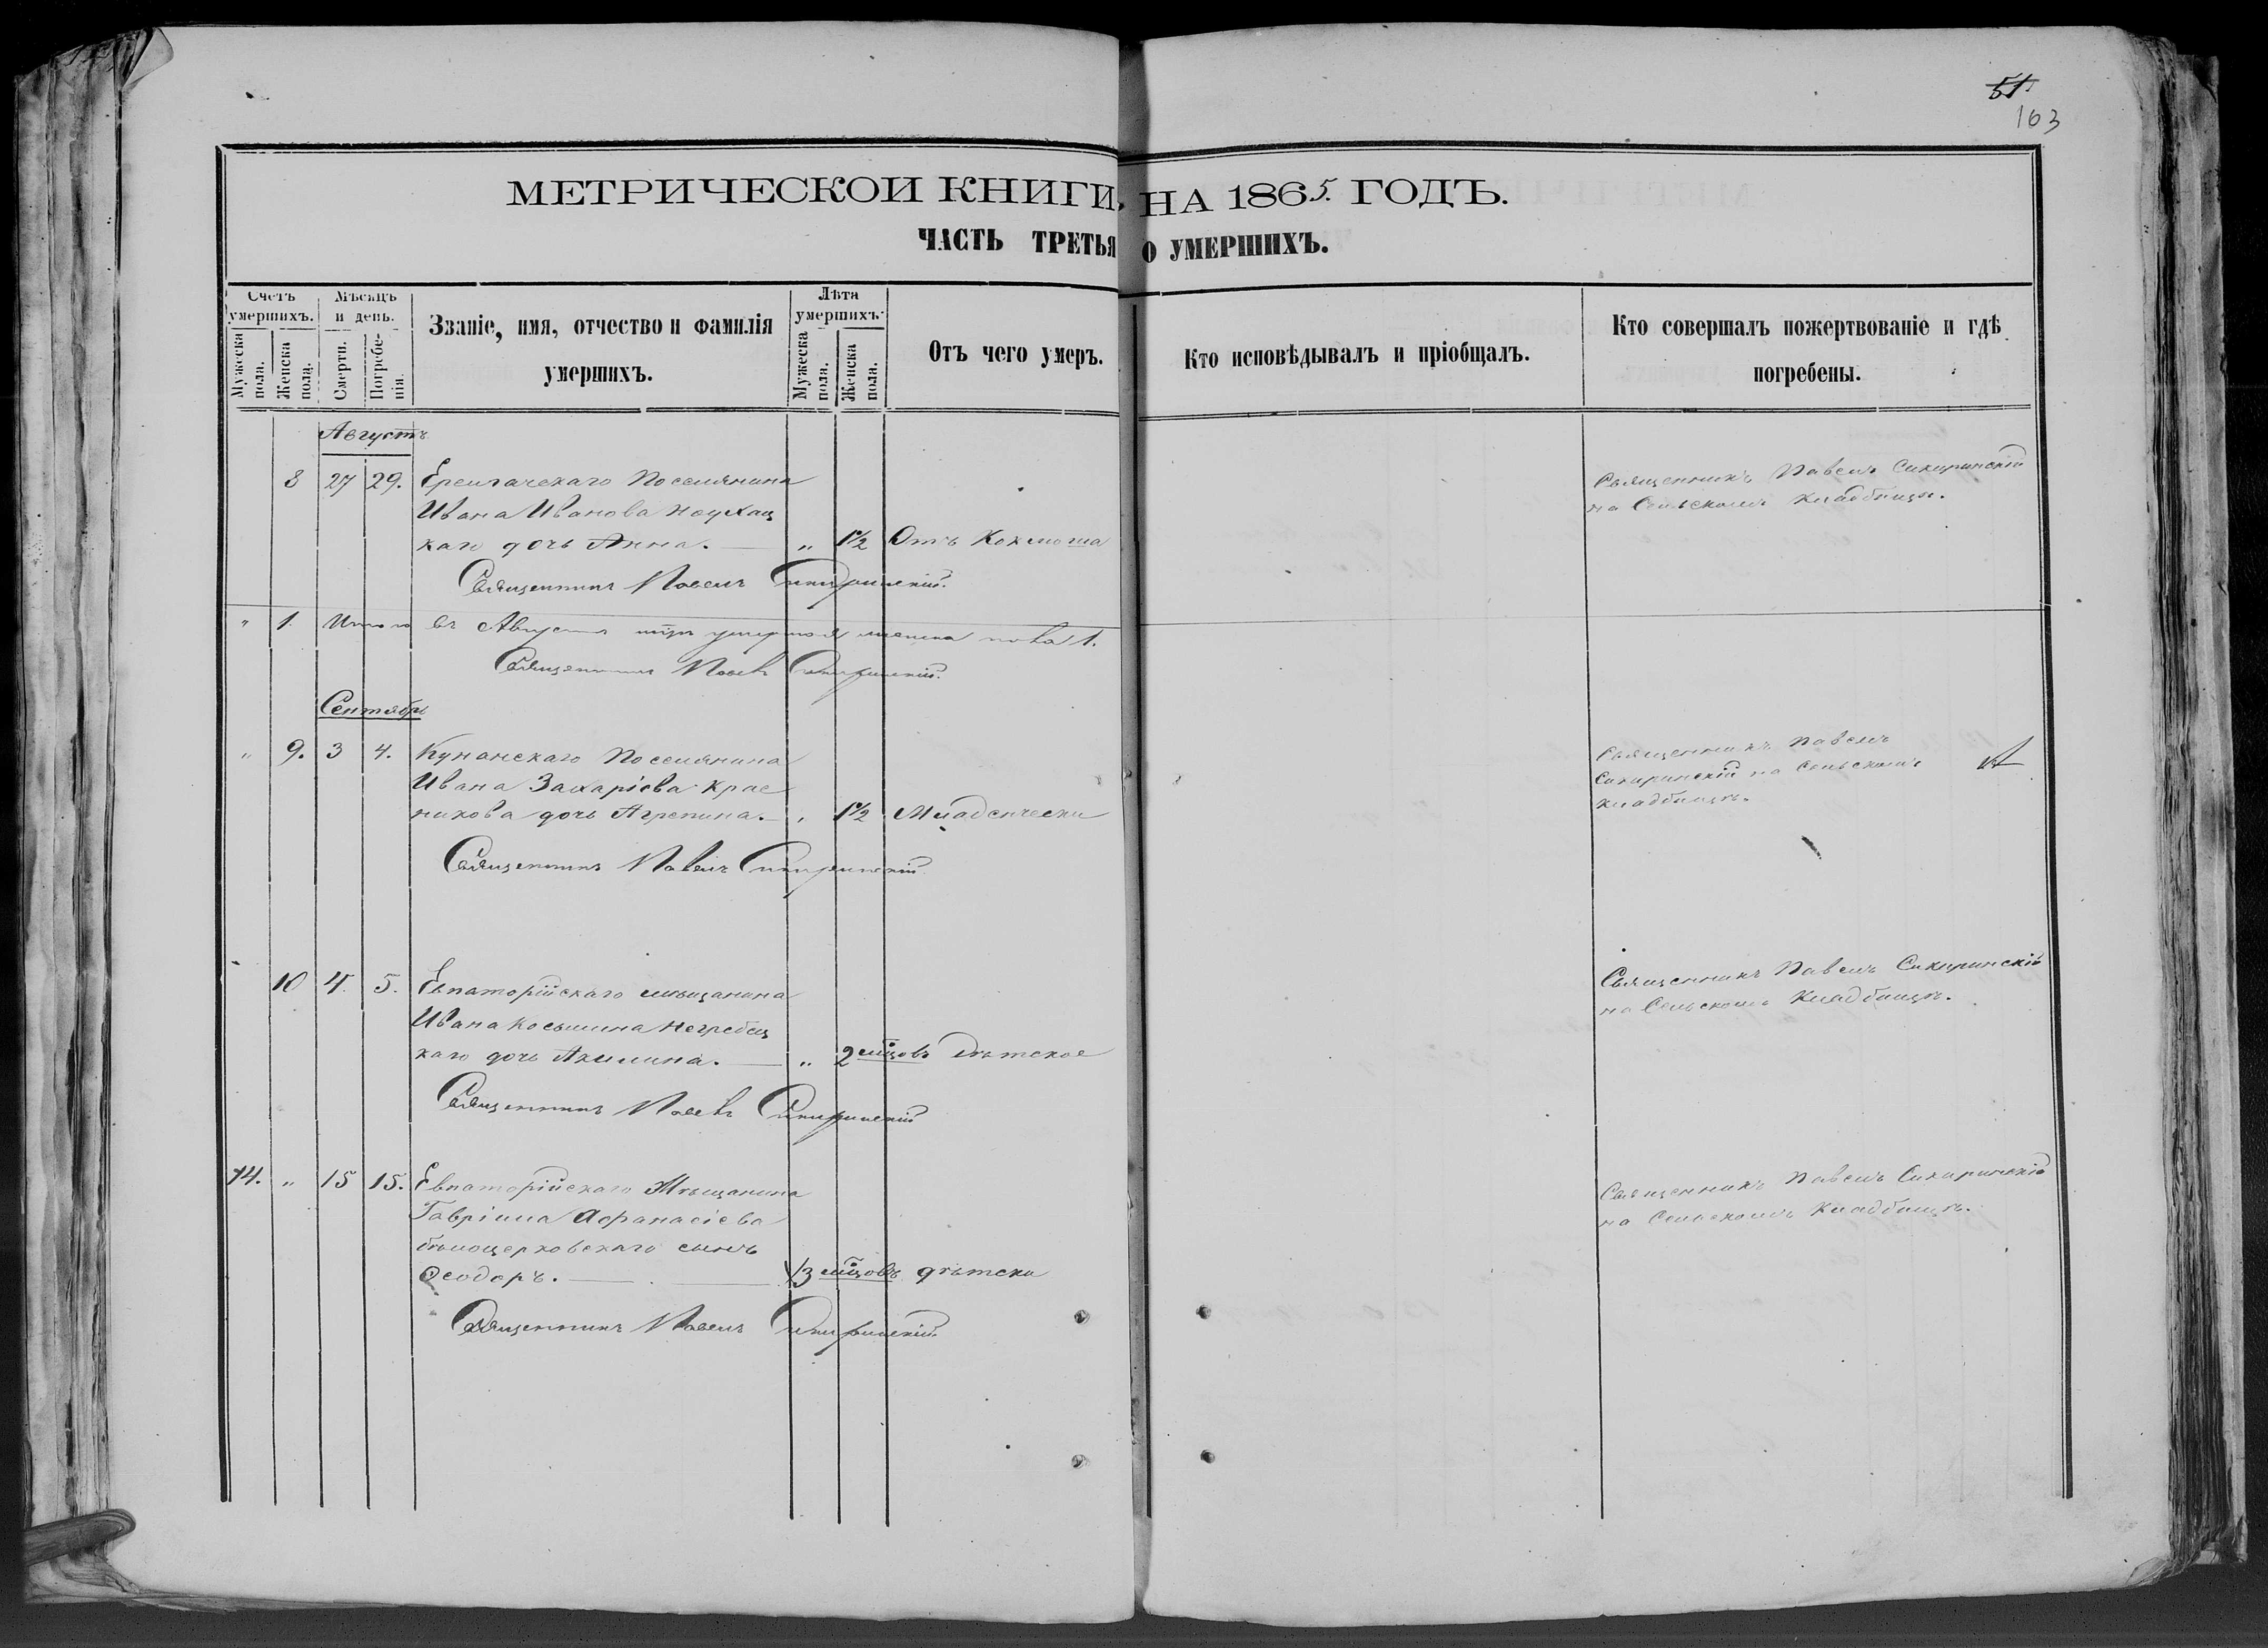 51
163
МЕТРИЧЕСКОЙ КНИГИ, НА 1865. ГОДЪ.
ЧАСТЬ ТРЕТЬЯ О УМЕРШИХЪ.
Счетъ умершихъ.
Мужеска пола.
Женска пола.
Мѣсяцъ и день.
Смерти.
Погребе-нія.
Званіе, имя, отчество и фамилія
умершихъ.
Лѣта умершихъ.
Мужеска пола.
Женска пола.
Отъ чего умеръ.
Кто исповѣдывалъ и пріобщалъ.
Кто совершалъ пожертвованіе и гдѣ
погребены.
Августъ
8 27 29. Поселянина
Ивана Иванова
каго дочь Анна. — „ 1½ Отъ Коклюша
Священникъ Павелъ Сикиринскій
на Сельскомъ кладбищѣ.
Священникъ Павелъ Сикиринскій.
„ 1. Итого въ Августѣ умершихъ женска пола 1.
Священникъ Павелъ Сикиринскій.
Сентябрь
„ 9. 3 4. Кунанскаго Поселянина
Ивана Захаріева Крас
никова дочь Агрепина. — „ 1½ Младенчески
Священникъ Павелъ
Сикиринскій на Сельскомъ
кладбищѣ.
Священникъ Павелъ Сикиринскій
10 4. 5. Евпаторійскаго мѣщанина
Ивана Косьмина Негребец
каго дочь Акилина. — „ 2 мѣцовъ Дѣтское
Священникъ Павелъ Сикиринскій
на Сельскомъ Кладбищѣ.
Священникъ Павелъ Сикиринскій
14. „ 15 15. Евпаторійскаго Мѣщанина
Гавріила Афанасіева
бѣлоцерковскаго сынъ
Ѳеодоръ. — 3 мѣцовъ дѣтски
Священникъ Павелъ Сикиринскій
на Сельскомъ Кладбищѣ.
Священникъ Павелъ Сикиринскій.